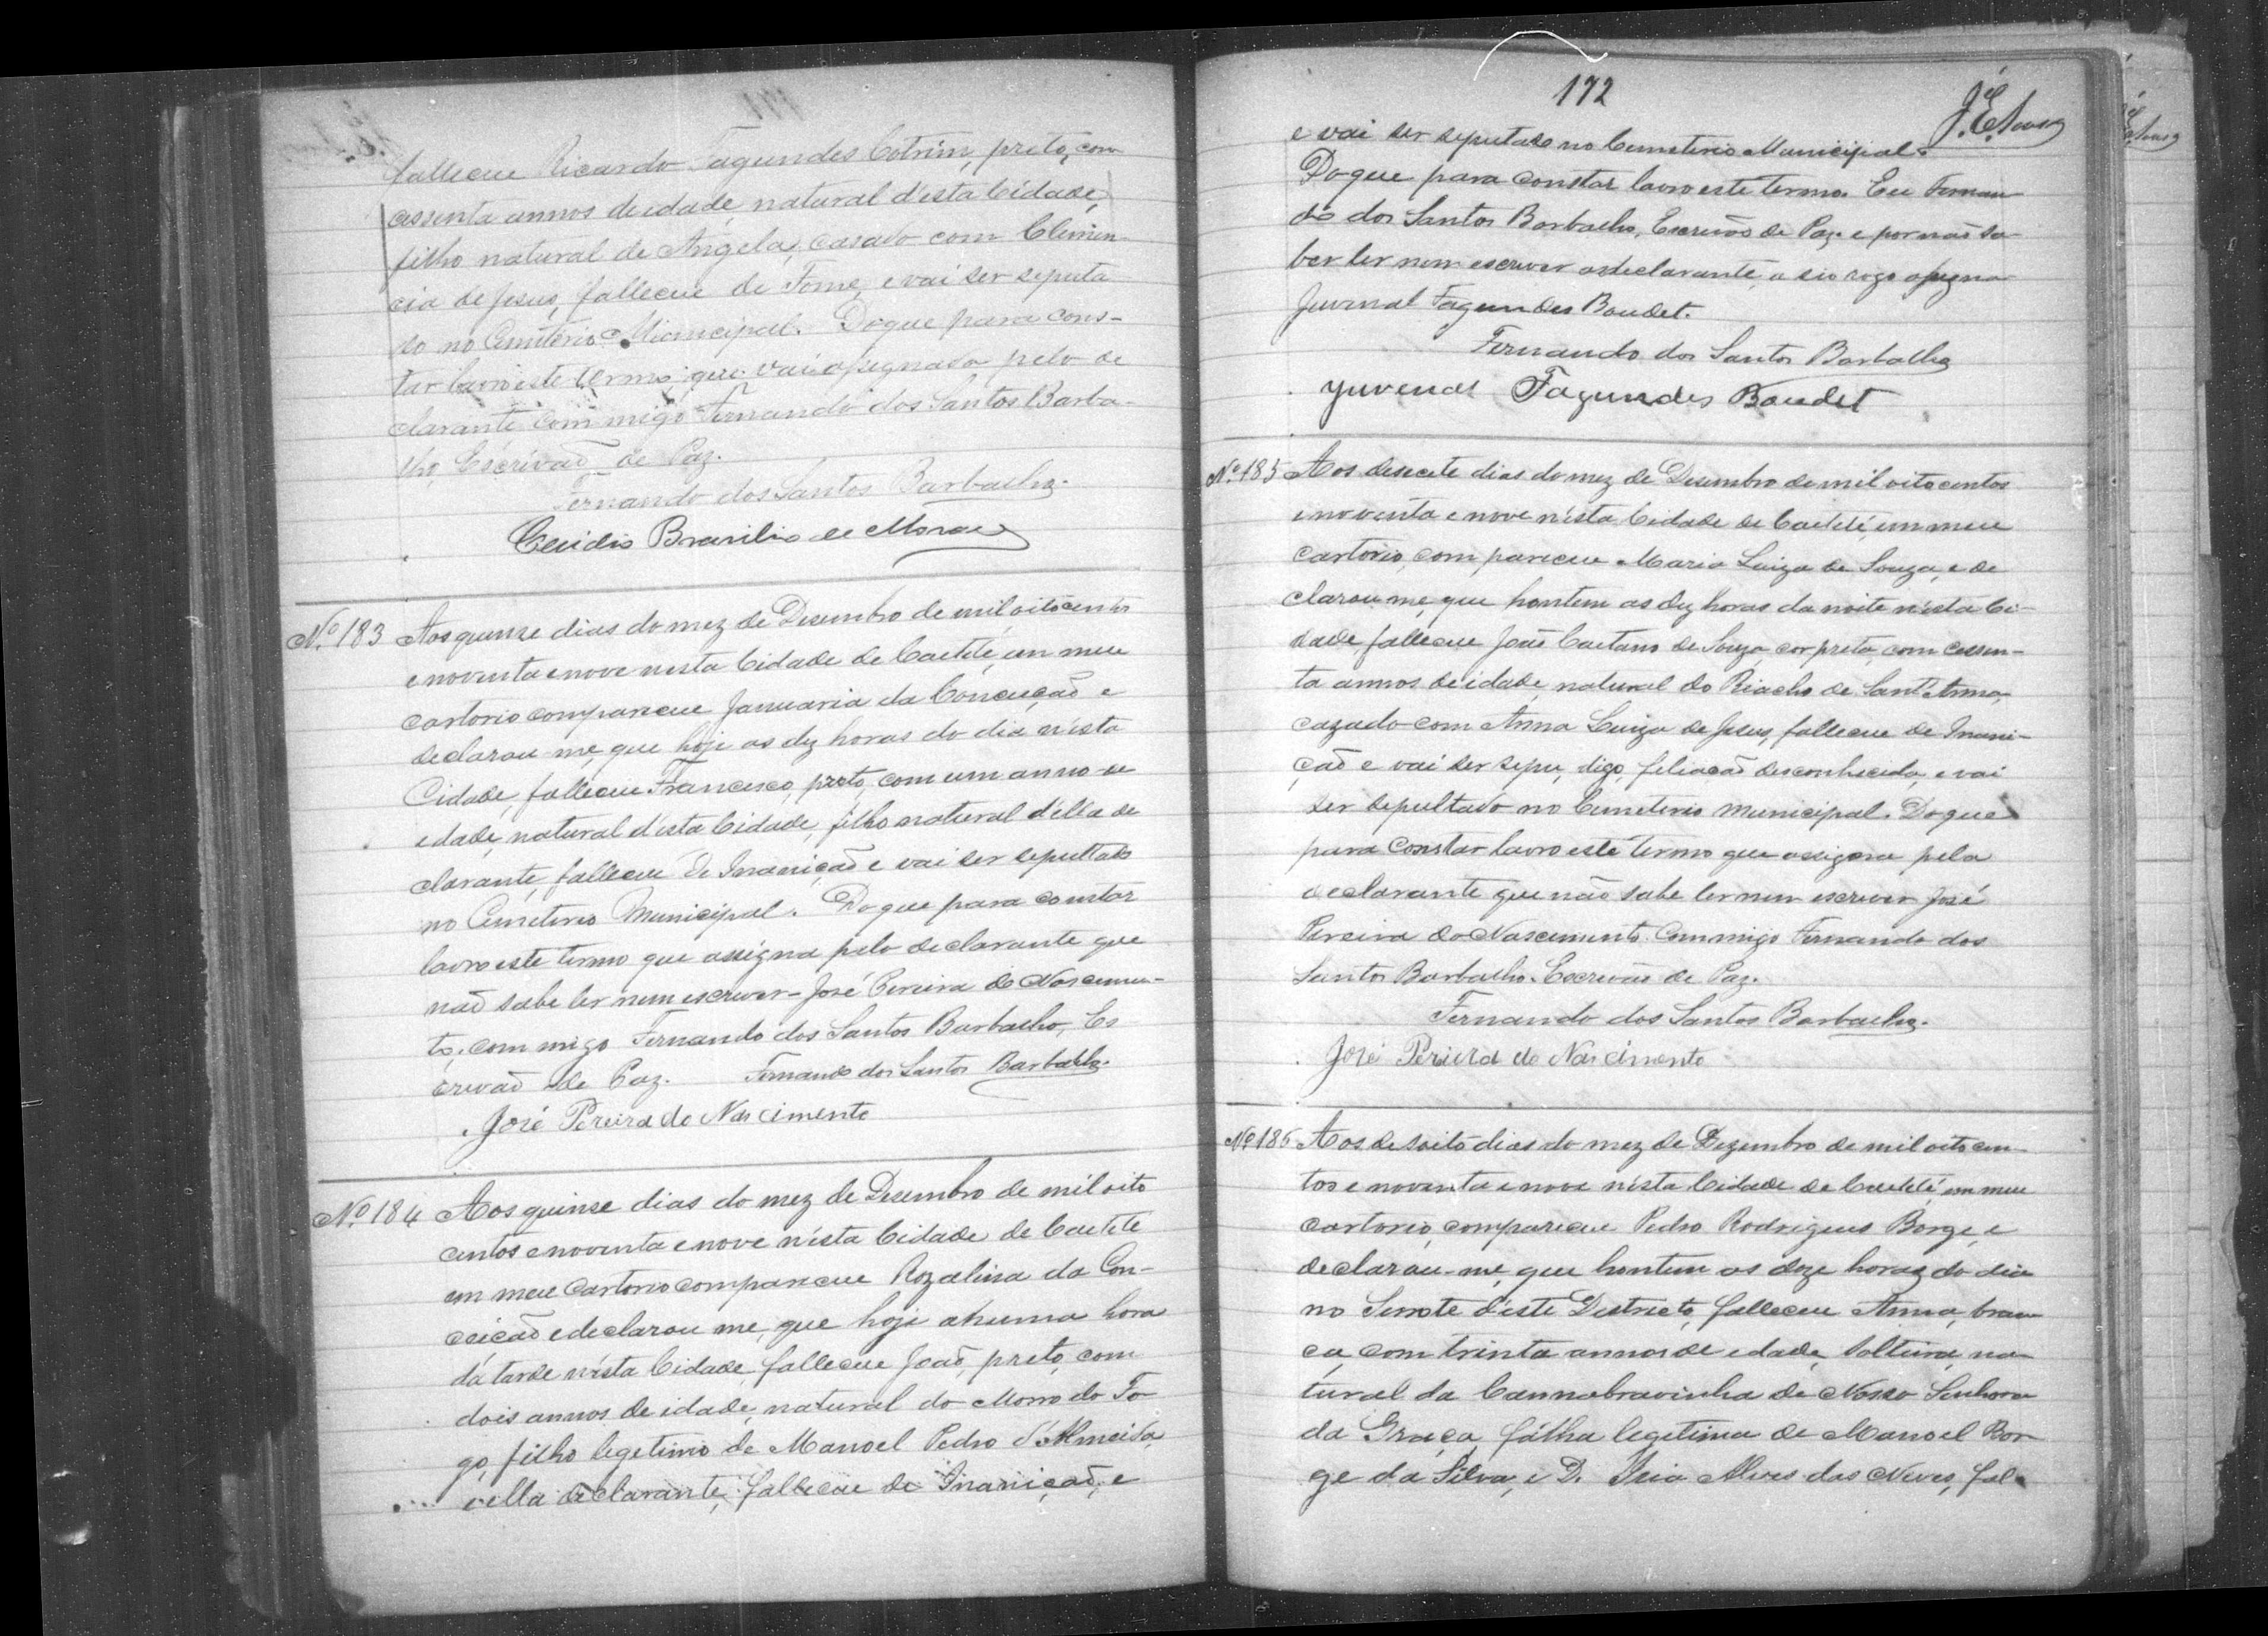 falleceu Ricardo Fagundes Cotrim, preto, com
cessenta annos de idade, natural d'esta Cidade,
filho natural de Angela, casado com Clemen-
cia de Jesus, falleceu de Fome, e vai ser sepulta
do no Cemiterio Municipal. Do que para cons-
tar lavro este termo, que vai assignado pelo de
clarante commigo Fernando dos Santos Barba-
lho, Escrivaõ de Paz.
Fernando dos Santos Barbalho.
Brasilio de Moraes
Nº 183 Aos quinse dias do mez de Desembro de mil oito centos
e noventa e nove nesta Cidade de Caetité, em meu
cartorio compareceu Januaria da Conceiçaõ e
declarou-me, que hoje as dez horas do dia n'esta
Cidade, falleceu Francisco, preto, com um anno de
edade, natural d'esta Cidade, filho natural d'ella de
clarante, falleceu de Inaniçaõ e vai ser sepultado
no Cemeterio Municipal. Do que para constar
lavro este termo que assigna pelo declarante que
naõ sabe ler nem escrever - José Pereira do Nascimen-
to, com migo Fernando dos Santos Barbalho, Es
crivaõ de Paz. Fernando dos Santos Barbalho.
José Pereira do Nascimento
Nº 184 Aos quinse dias do mez de Desembro de mil oito
centos e noventa e nove n'esta Cidade de Caetité
em meu cartorio compareceu Rozalina da Con-
ceiçaõ e declarou me, que hoje ahuma hora
da tarde n'esta Cidade, falleceu Joaõ, preto, com
dois annos de idade, natural do Morro do Fo
go, filho legetimo de Manoel Pedro d'Almeida,
e ella declarante, falleceu de Inaniçaõ, e
172
J. E. Souza
e vai ser seputado no Cemeterio Municipal.
Do que para constar lavro este termo. Eu Fernan
do dos Santos Barbalho, Escrivão de Paz. e por naõ sa
ber ler nem escrever a declarante, a seo rogo assigna
Juvenal Fagundes Boudet.
Fernando dos Santos Barbalho
Juvenal Fagundes Boudet
Nº 185 Aos desecete dias do mez de Desembro de mil oito centos
e noventa e nove n'esta Cidade de Caetité, em meu
cartorio, compareceu Maria Luiza de Souza, e de
clarou me, que hontem as dez horas da noite n'esta Ci-
dade, falleceu Joaõ Caetano de Souza, cor preta, com cessen-
ta annos de idade, natural do Riacho de Sant'Anna,
cazado com Anna Luiza de Jesus, falleceu de Inani-
çaõ e vai ser sepu, digo, filiacaõ desconhecida, e vai
ser sepultado no Cemeterio Municipal. Do que
para constar lavro este termo que assigna pela
declarante que não sabe ler nem escrever José
Pereira do Nascimento. Commigo Fernando dos
Santos Barbalho. Escrivão de Paz.
Fernando dos Santos Barbalho.
José Pereira do Nascimento
Nº 186 Aos desoito dias do mez de Dezembro de mil oito cen
tos e noventa e nove n'esta Cidade de Caetité em meu
cartorio, compareceu Pedro Rodrigues Borge, e
declarou-me, que hontem as doze horas do dia
no Serrote d'este Destricto, falleceu Anna, bran
ca, com trinta annos de edade, solteira, na
tural da Cannabravinha de Nossa Senhora
da Graça, filha legetima de Manoel Bor
ge da Silva, e D. Alves das Neves, fal